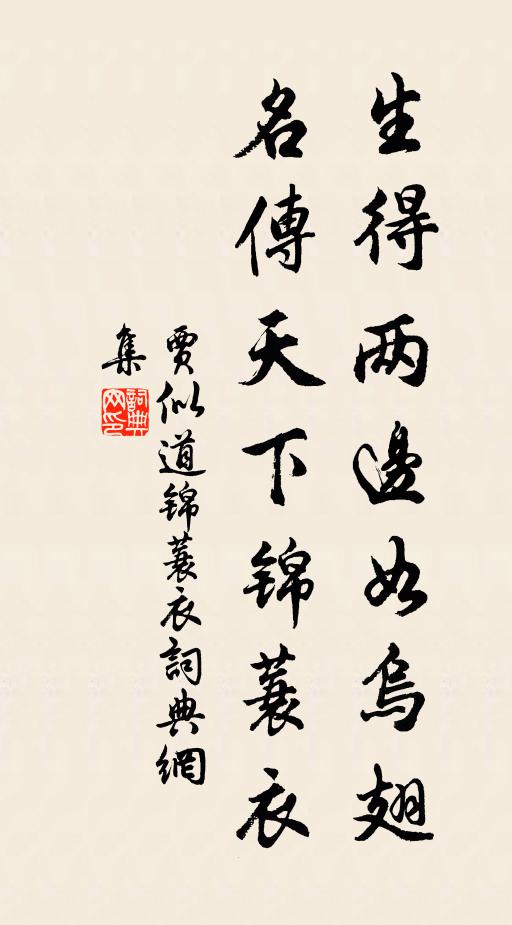 生得两邊如烏翅
名傳天下锦蓑衣
賈似道锦蓑衣詞典網
集
詞典
网印